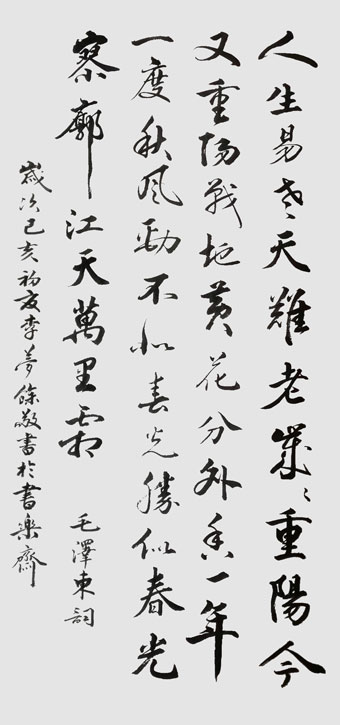 人生易老天難老歲〻重陽今
又重陽戰地黃花分外香一年
一度秋風勁不似春光勝似春光
寥廓江天萬里霜 毛澤東詞
歲次己亥初夏李夢餘敬書於書樂齋